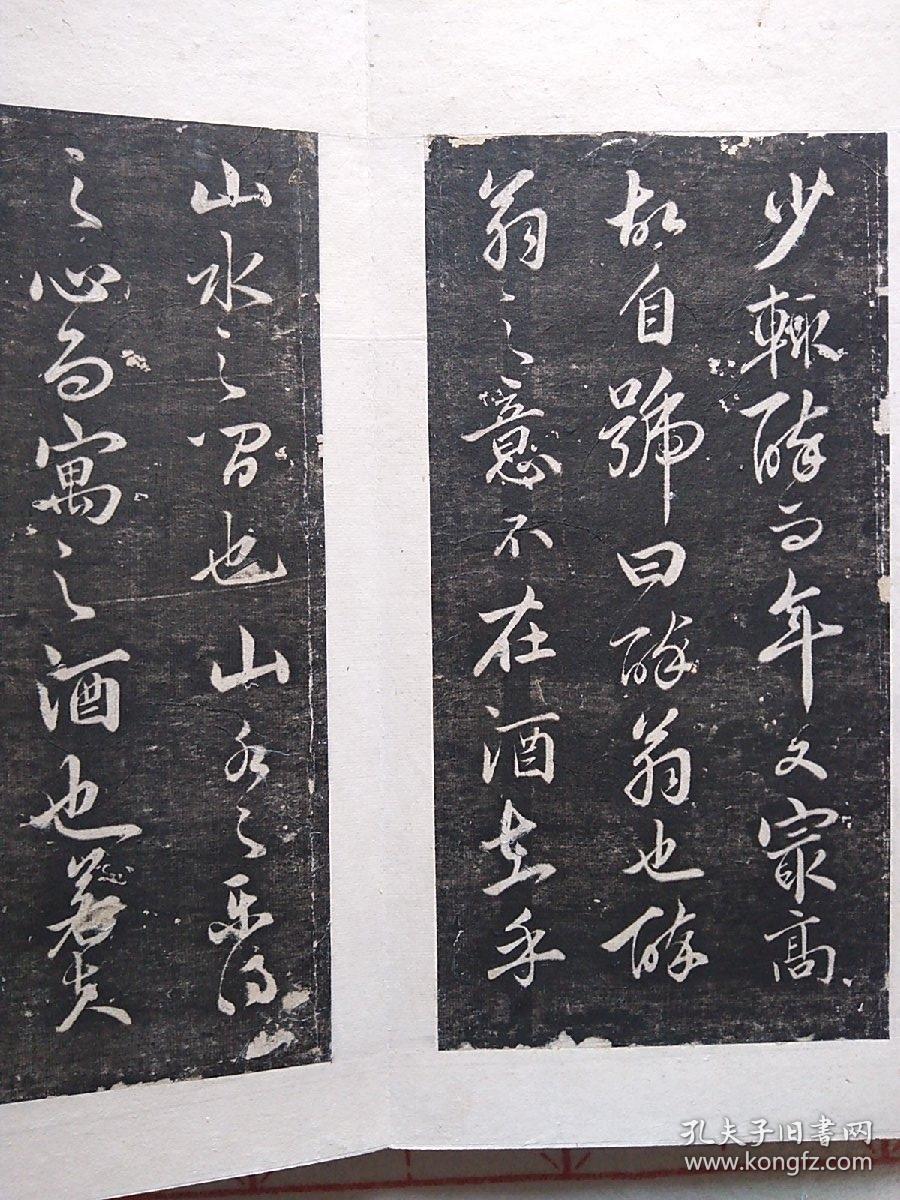 少輒醉而年又最高
故自號曰醉翁也醉
翁之意不在酒在乎
山水之間也山水之樂得
之心而寓之酒也若夫
孔夫子旧書网
www.kongfz.com